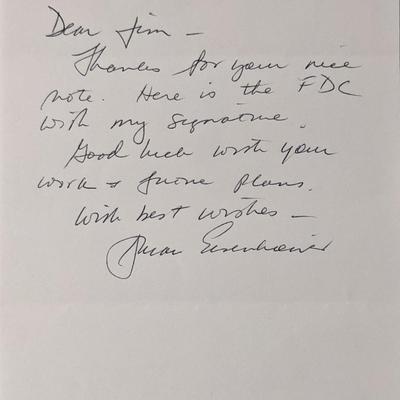 Dear Jim –
Thanks for your nice
note. Here is the FDC
with my signature.
Good luck with your
work & future plans.
With best wishes –
Susan Eisenhower